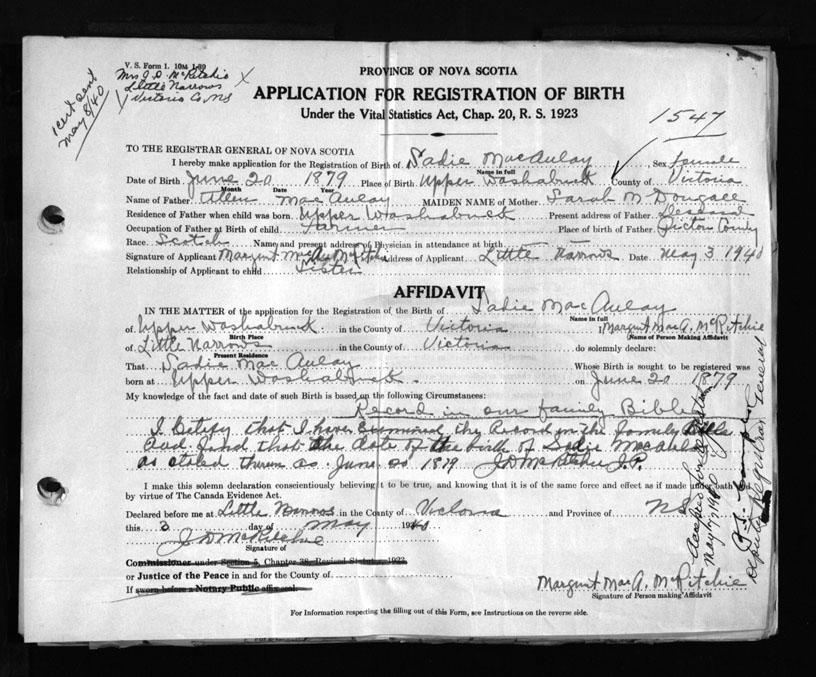 V. S. Form 1. 10M 1-39
Mrs J. D. McRitchie
Little Narrows
Victoria Co, NS
1 cert sent
May 8/40
PROVINCE OF NOVA SCOTIA
APPLICATION FOR REGISTRATION OF BIRTH
Under the Vital Statistics Act, Chap. 20, R. S. 1923
1547
TO THE REGISTRAR GENERAL OF NOVA SCOTIA
I hereby make application for the Registration of Birth of Sadie MacAulay, Sex female
Name in full
Date of Birth June 20 1879 Place of Birth Upper Washabuck County of Victoria
Month Date Year
Name of Father Allen MacAulay MAIDEN NAME of Mother Sarah McDougall
Residence of Father when child was born Upper Washabuck Present address of Father Deceased
Occupation of Father at Birth of child Farmer Place of birth of Father Pictou County
Race Scotch Name and present address of Physician in attendance at birth
Signature of Applicant Margaret MacA. McRitchie Address of Applicant Little Narrows Date May 3 1940
Relationship of Applicant to child Sister
AFFIDAVIT
IN THE MATTER of the application for the Registration of the Birth of Sadie MacAulay
Name in full
of Upper Washabuck in the County of Victoria I Margaret MacA. McRitchie
Birth Place (Name of Person Making Affidavit
of Little Narrows in the County of Victoria do solemnly declare:
Present Residence
That Sadie MacAulay Whose Birth is sought to be registered was
born at Upper Washabuck. on June 20 1879
My knowledge of the fact and date of such Birth is based on the following Circumstances:
Record in our family Bible
I Certify that I have Examined the Record in the family Bible
and find that the date of the birth of Sadie MacAulay
as stated therein as June 20 1879 J D McRitchie J.P.
I make this solemn declaration conscientiously believing it to be true, and knowing that it is of the same force and effect as if made under oath and
by virtue of The Canada Evidence Act.
Declared before me at Little Narrows in the County of Victoria and Province of N S
this 3 day of May 1940
J D McRitchie
Signature of
Commissioner under Section 5, Chapter 38, Revised Statutes 1923
or Justice of the Peace in and for the County of
If sworn before a Notary Public affix seal.
Margaret MacA. McRitchie
Signature of Person making Affidavit
For Information respecting the filling out of this Form, see Instructions on the reverse side.
Accepted for registration
May 7, 1940
Deputy Registrar General